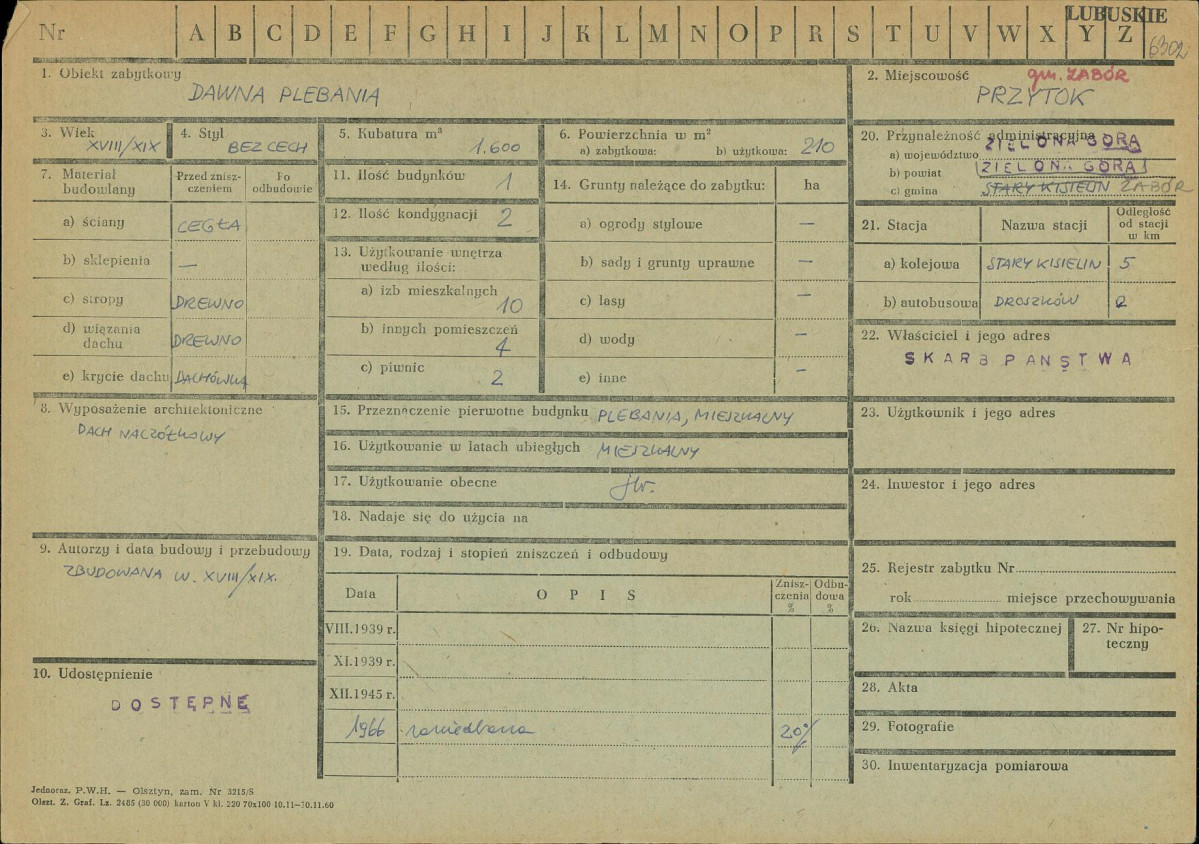 Nr A B C D E F G H I J K L M N O P R S T U V W X Y Z
LUBUSKIE
6302
1. Obiekt zabytkowy
DAWNA PLEBANIA
2. Miejscowość gm. ZABÓR
PRZYTOK
3. Wiek
XVIII/XIX
4. Styl
BEZ CECH
5. Kubatura m³
1.600
6. Powierzchnia w m²
a) zabytkowa: b) użytkowa: 210
20. Przynależność administracyjna
a) województwo ZIELONA GÓRA
b) powiat ZIELONA GÓRA
c) gmina STARY KISIELIN ZABÓR
7. Materiał budowlany
Przed zniszczeniem
Po odbudowie
a) ściany CEGŁA
b) sklepienia —
c) stropy DREWNO
d) wiązania dachu DREWNO
e) krycie dachu DACHÓWKA
11. Ilość budynków 1
12. Ilość kondygnacji 2
13. Użytkowanie wnętrza
według ilości:
a) izb mieszkalnych
10
b) innych pomieszczeń
4
c) piwnic
2
14. Grunty należące do zabytku: ha
a) ogrody stylowe —
b) sady i grunty uprawne —
c) lasy —
d) wody —
e) inne —
21. Stacja Nazwa stacji
Odległość
od stacji
w km
a) kolejowa STARY KISIELIN 5
b) autobusowa DROSZKÓW 2
22. Właściciel i jego adres
SKARB PAŃSTWA
8. Wyposażenie architektoniczne
DACH NACZÓŁKOWY
15. Przeznaczenie pierwotne budynku PLEBANIA, MIESZKALNY
16. Użytkowanie w latach ubiegłych MIESZKALNY
17. Użytkowanie obecne jw.
18. Nadaje się do użycia na
23. Użytkownik i jego adres
24. Inwestor i jego adres
9. Autorzy i data budowy i przebudowy
ZBUDOWANA W. XVIII/XIX.
19. Data, rodzaj i stopień zniszczeń i odbudowy
Data OPIS
Zniszczenia %
Odbudowa %
VIII.1939 r.
XI.1939 r.
XII.1945 r.
1966 zaniedbana 20%
10. Udostępnienie
DOSTĘPNE
25. Rejestr zabytku Nr
rok miejsce przechowywania
26. Nazwa księgi hipotecznej
27. Nr hipo-
teczny
28. Akta
29. Fotografie
30. Inwentaryzacja pomiarowa
Jednoraz. P.W.H. — Olsztyn, zam. Nr 3215/S
Olszt. Z. Graf. Lz. 2485 (30 000) karton V kl. 220 70x100 10.11—30.11.60